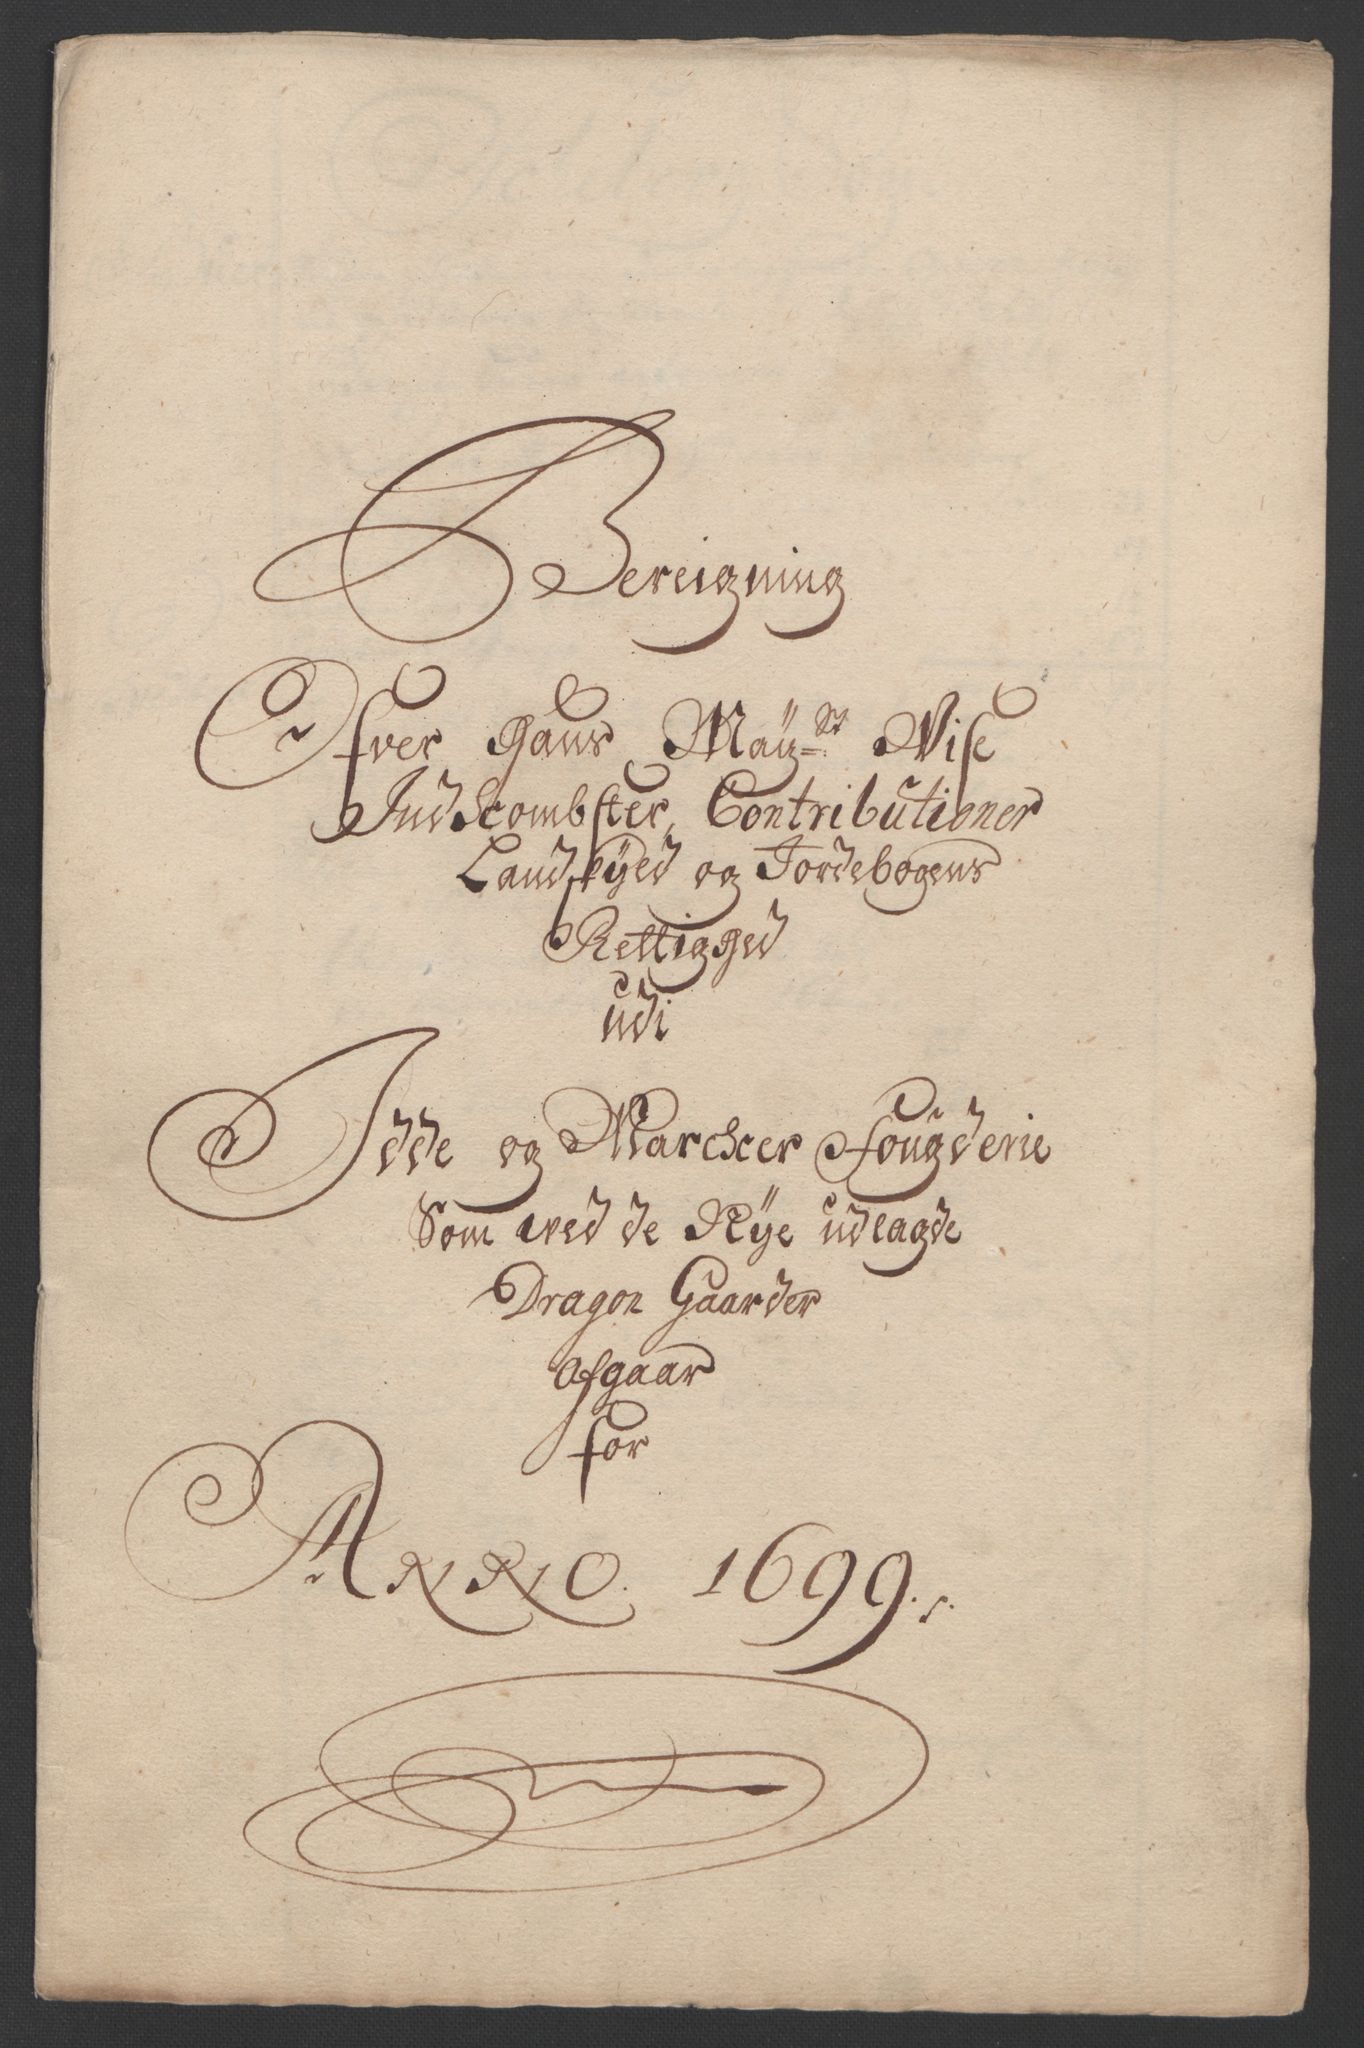 Bereigning
Ofver Hans Maÿ:st Vise
Indkombster, Contributioner
Landskÿld og Jordebogens
Rettighed
udi
Idde og Marcker Fougderie
Som ved de Nÿe udlagde
Dragon Gaarder
Afgaar
for
ANNO. 1699.